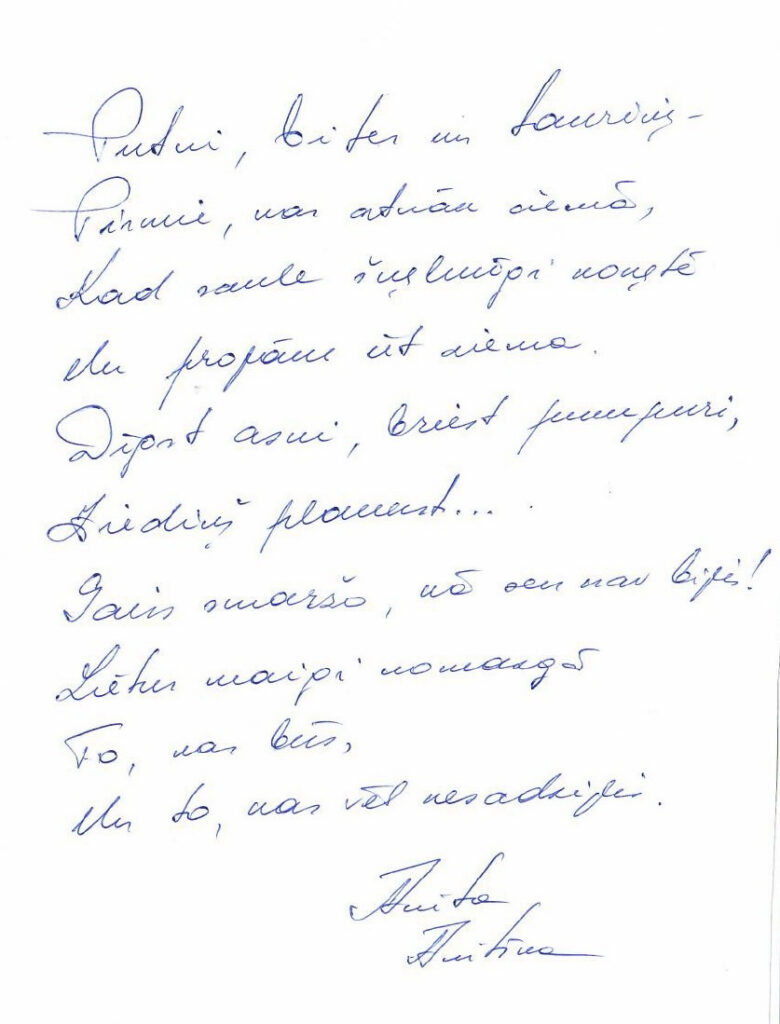 Putni, bites un tauriņi -
Pirmie, kas atnāk ciemā,
Kad saule šķelmīgi noņetē
Un projām iet ziema.
Dīgst asni, briest pumpuri,
Ziediņš plaukst...
Gaiss smaržo, kā sen nav bijis!
Lietus maigi nomazgā
To, kas būs,
Un to, kas vēl nesadzijis.
Anita
Anitina